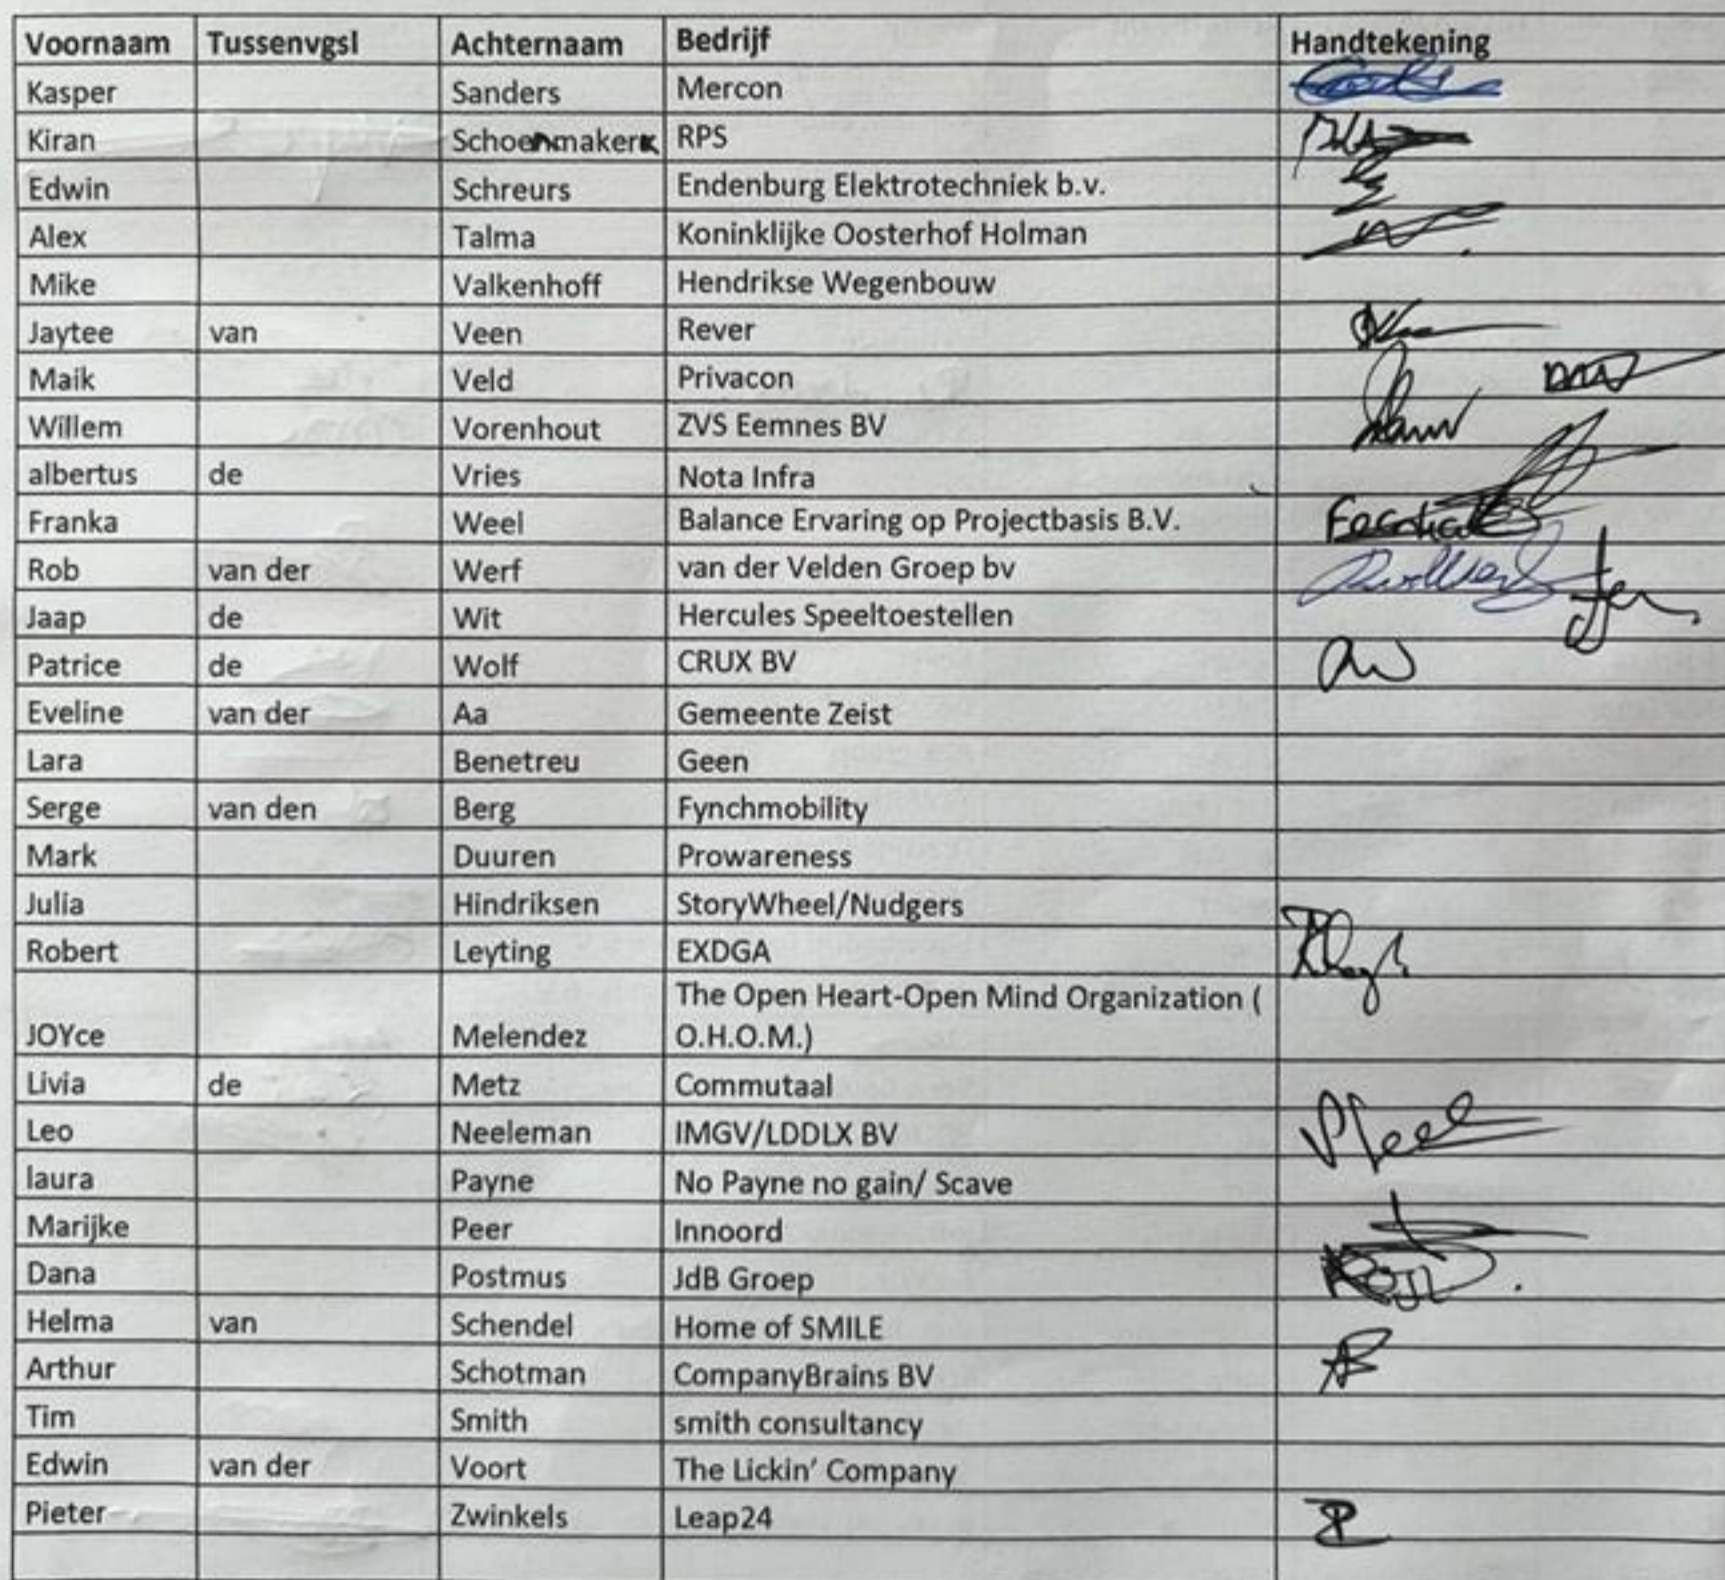 Voornaam Tussenvgsl Achternaam Bedrijf Handtekening
Kasper Sanders Mercon
Kiran Schoenmaker RPS
Edwin Schreurs Endenburg Elektrotechniek b.v.
Alex Talma Koninklijke Oosterhof Holman
Mike Valkenhoff Hendrikse Wegenbouw
Jaytee van Veen Rever
Maik Veld Privacon
Willem Vorenhout ZVS Eemnes BV
albertus de Vries Nota Infra
Franka Weel Balance Ervaring op Projectbasis B.V.
Rob van der Werf van der Velden Groep bv
Jaap de Wit Hercules Speeltoestellen
Patrice de Wolf CRUX BV
Eveline van der Aa Gemeente Zeist
Lara Benetreu Geen
Serge van den Berg Fynchmobility
Mark Duuren Prowareness
Julia Hindriksen StoryWheel/Nudgers
Robert Leyting EXDGA
The Open Heart-Open Mind Organization (
JOYce Melendez O.H.O.M.)
Livia de Metz Commutaal
Leo Neeleman IMGV/LDDLX BV
laura Payne No Payne no gain/ Scave
Marijke Peer Innoord
Dana Postmus JdB Groep
Helma van Schendel Home of SMILE
Arthur Schotman CompanyBrains BV
Tim Smith smith consultancy
Edwin van der Voort The Lickin' Company
Pieter Zwinkels Leap24